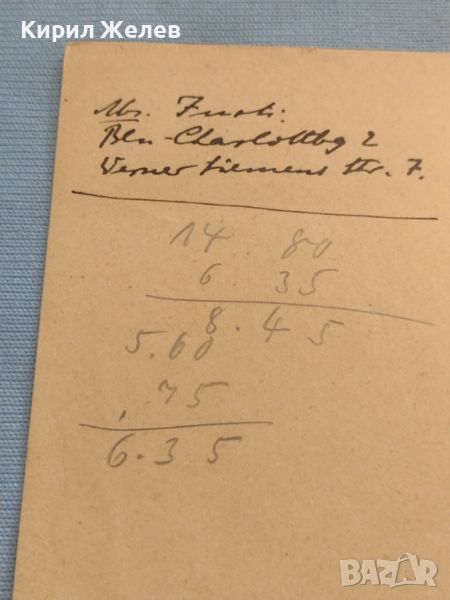 Кирил Желев
Abs.
Bln-Charlottbg 2
Werner Siemens Str. 7.
14.80
6.35
8.45
5.60
.75
6.35
BAZAR